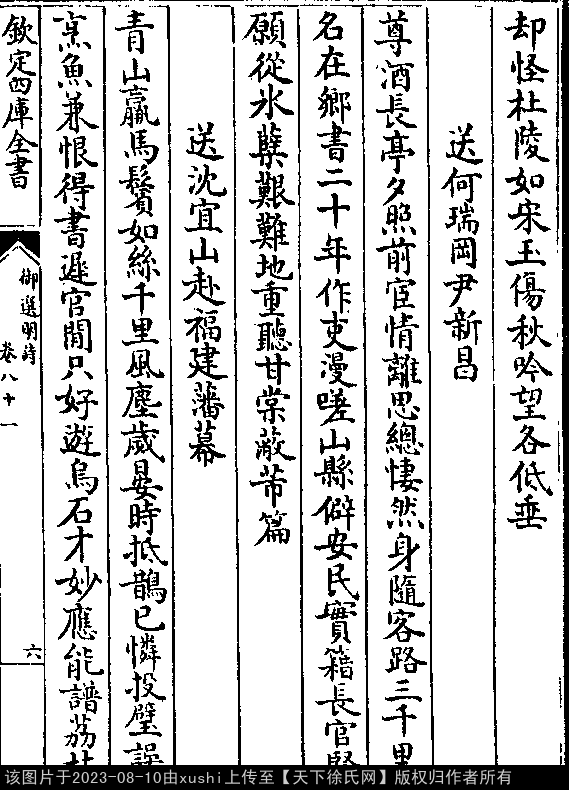 却怪杜陵如宋玉傷秋吟望各低垂
送何瑞岡尹新昌
尊酒長亭夕照前宦情離思總悽然身隨客路三千里
名在鄉書二十年作吏漫嗟山縣僻安民實籍長官賢
願從氷蘖艱難地重聽甘棠蔽芾篇
送沈宜山赴福建藩幕
青山羸馬鬢如絲千里風塵歲晏時抵鵲已憐投璧誤
烹魚兼恨得書遲官閒只好遊烏石才妙應能譜荔
欽定四庫全書
御選明詩
卷八十一
六
该图片于2023-08-10由xushi上传至【天下徐氏网】版权归作者所有